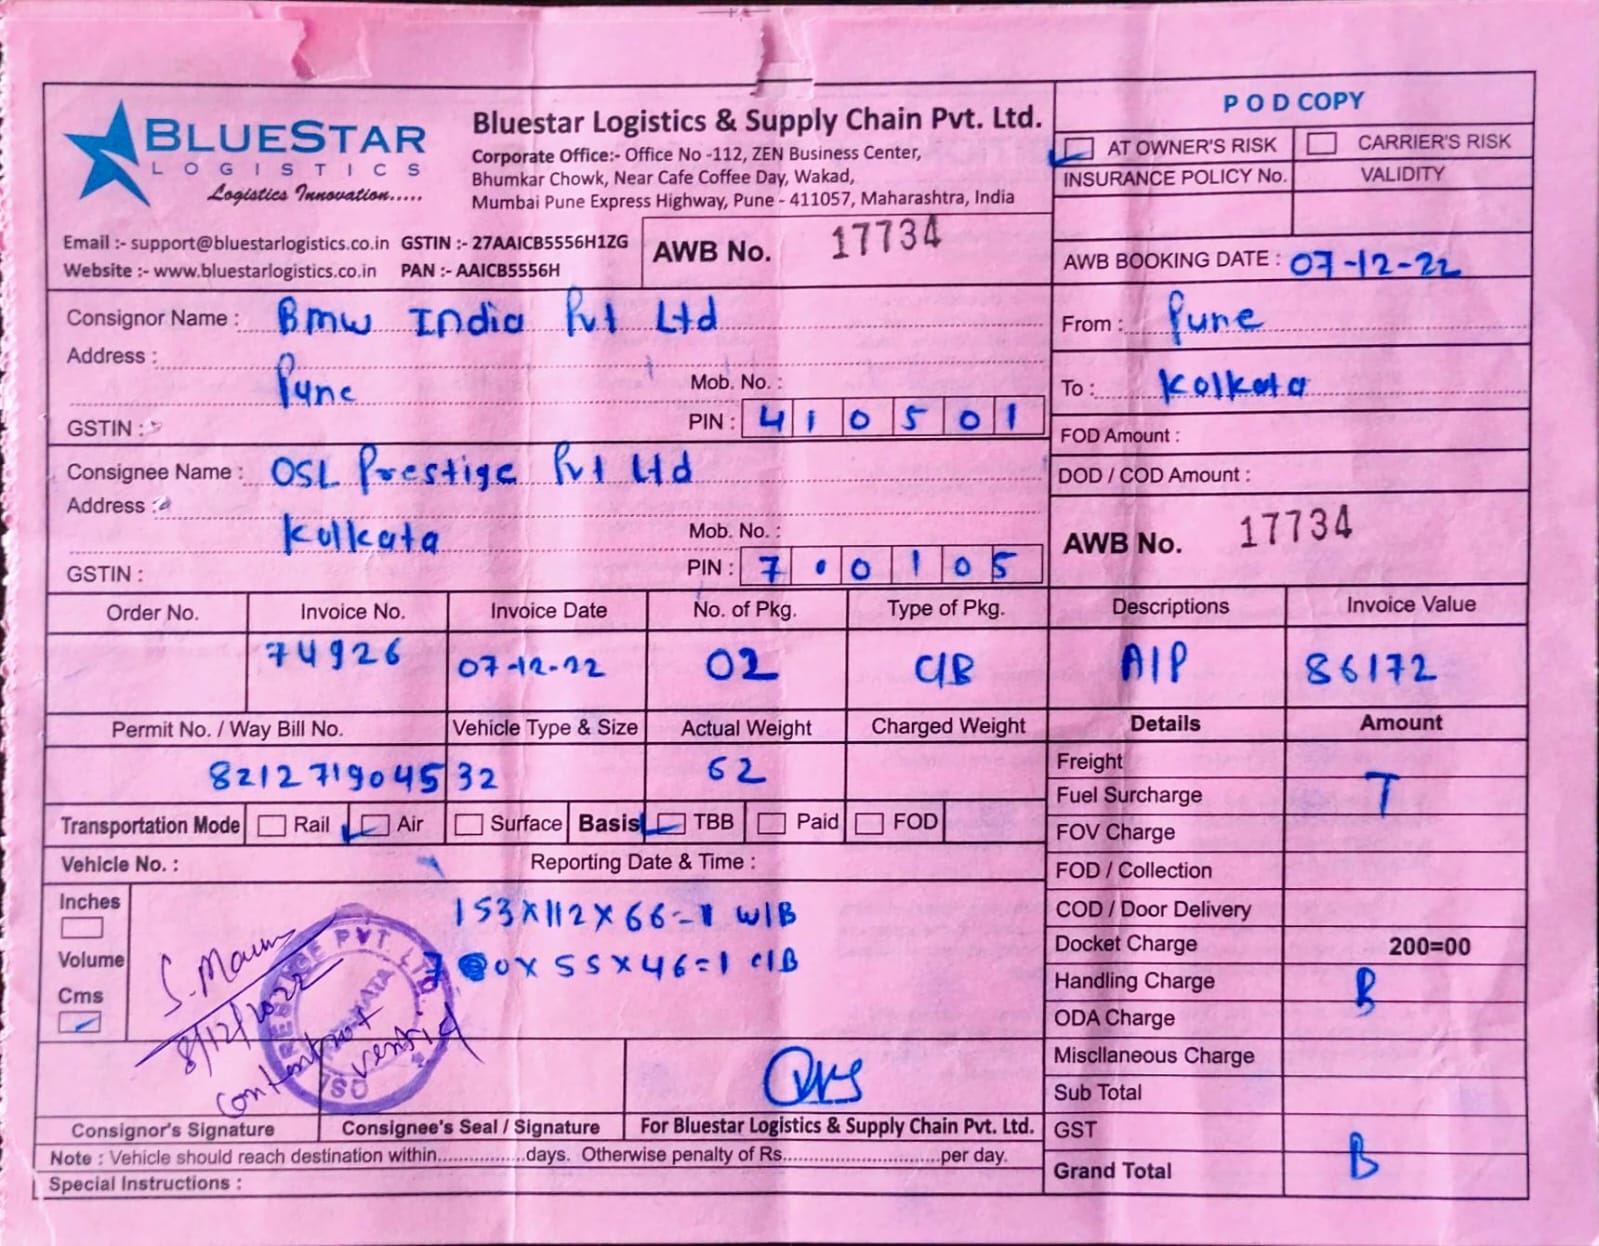 BLUESTAR
LOGISTICS
Logistics Innovation.....
Bluestar Logistics & Supply Chain Pvt. Ltd.
Corporate Office:- Office No -112, ZEN Business Center,
Bhumkar Chowk, Near Cafe Coffee Day, Wakad,
Mumbai Pune Express Highway, Pune - 411057, Maharashtra, India
Email :- support@bluestarlogistics.co.in GSTIN :- 27AAICB5556H1ZG
Website :- www.bluestarlogistics.co.in PAN :- AAICB5556H
AWB No. 17734
POD COPY
AT OWNER'S RISK CARRIER'S RISK
INSURANCE POLICY No. VALIDITY
AWB BOOKING DATE : 07-12-22
Consignor Name : Bmw India Pvt Ltd
Address :
Pune
Mob. No. :
GSTIN :
PIN : 410501
From : Pune
To : Kolkata
FOD Amount :
DOD / COD Amount :
Consignee Name : OSL Prestige Pvt Ltd
Address :
Kolkata
Mob. No. :
GSTIN :
PIN : 700105
AWB No. 17734
Order No. Invoice No. Invoice Date No. of Pkg. Type of Pkg. Descriptions Invoice Value
74926 07-12-22 02 C/B A/P 86172
Permit No. / Way Bill No. Vehicle Type & Size Actual Weight Charged Weight Details Amount
821271904532 62
Transportation Mode Rail Air Surface Basis TBB Paid FOD
Vehicle No. : Reporting Date & Time :
Inches
Volume
Cms
153X112X66=1 W/B
X 55X46=1 C/B
Freight
Fuel Surcharge T
FOV Charge
FOD / Collection
COD / Door Delivery
Docket Charge 200=00
Handling Charge B
ODA Charge
Miscllaneous Charge
Sub Total
GST
Grand Total B
8/12/2022
Content not
verified
Consignor's Signature Consignee's Seal / Signature For Bluestar Logistics & Supply Chain Pvt. Ltd.
Note : Vehicle should reach destination within................days. Otherwise penalty of Rs.............................per day.
Special Instructions :